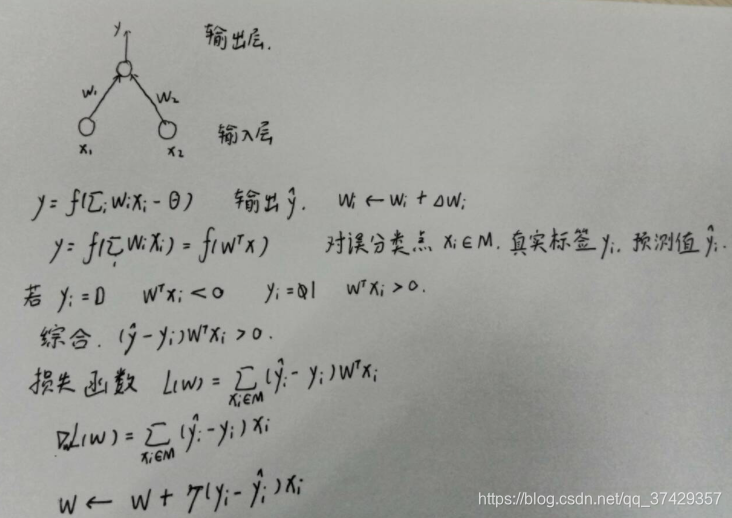 y 输出层.
w₁ w₂
x₁ x₂ 输入层
y = f(Σᵢ wᵢxᵢ - θ) 输出 ŷ. wᵢ ← wᵢ + Δwᵢ
y = f(Σᵢ wᵢxᵢ) = f(wᵀx) 对误分类点 xᵢ∈M. 真实标签 yᵢ. 预测值 ŷᵢ.
若 yᵢ = 0 wᵀxᵢ < 0 yᵢ = 1 wᵀxᵢ > 0.
综合. (ŷ - yᵢ)wᵀxᵢ > 0.
损失函数 L(w) = Σ_{xᵢ∈M} (ŷᵢ - yᵢ)wᵀxᵢ
∇L(w) = Σ_{xᵢ∈M} (ŷᵢ - yᵢ)xᵢ
w ← w + η(yᵢ - ŷᵢ)xᵢ
https://blog.csdn.net/qq_37429357